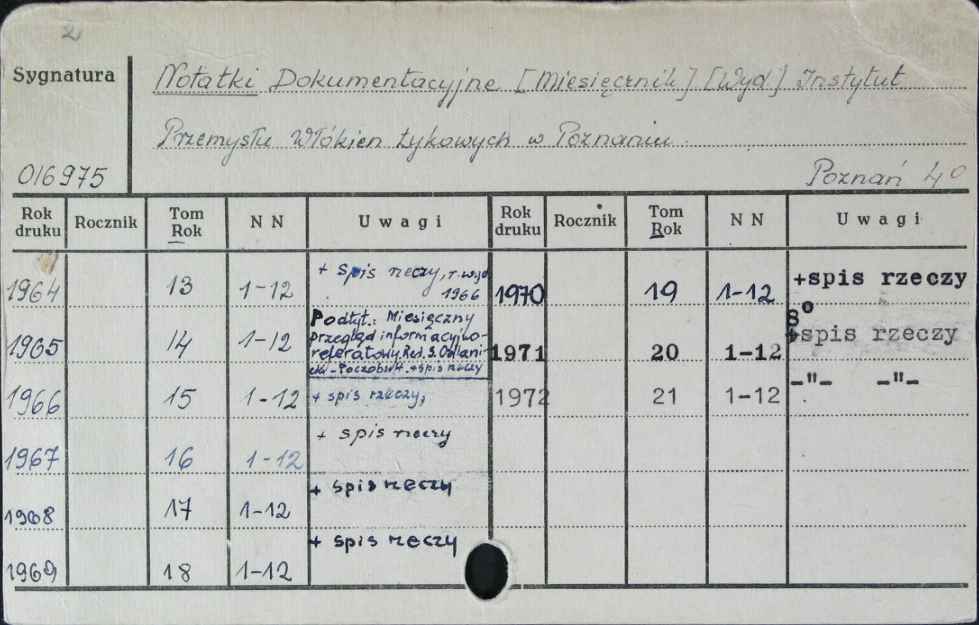 2
Sygnatura
016975
Notatki Dokumentacyjne [Miesięcznik] [Wyd] Instytut
Przemysłu Włókien Łykowych w Poznaniu.
Poznań 4°
Rok druku Rocznik Tom Rok NN Uwagi Rok druku Rocznik Tom Rok NN Uwagi
1964 13 1-12 + spis rzeczy, r. wyd 1966
1965 14 1-12 Podtyt.: Miesięczny
przegląd informacyjno-
referatowy. Red. S.
-Poczobutt. + spis rzeczy
1966 15 1-12 + spis rzeczy,
1967 16 1-12 + spis rzeczy
1968 17 1-12 + spis rzeczy
1969 18 1-12 + spis rzeczy
1970 19 1-12 +spis rzeczy
8°
1971 20 1-12 +spis rzeczy
1972 21 1-12 -"- -"-